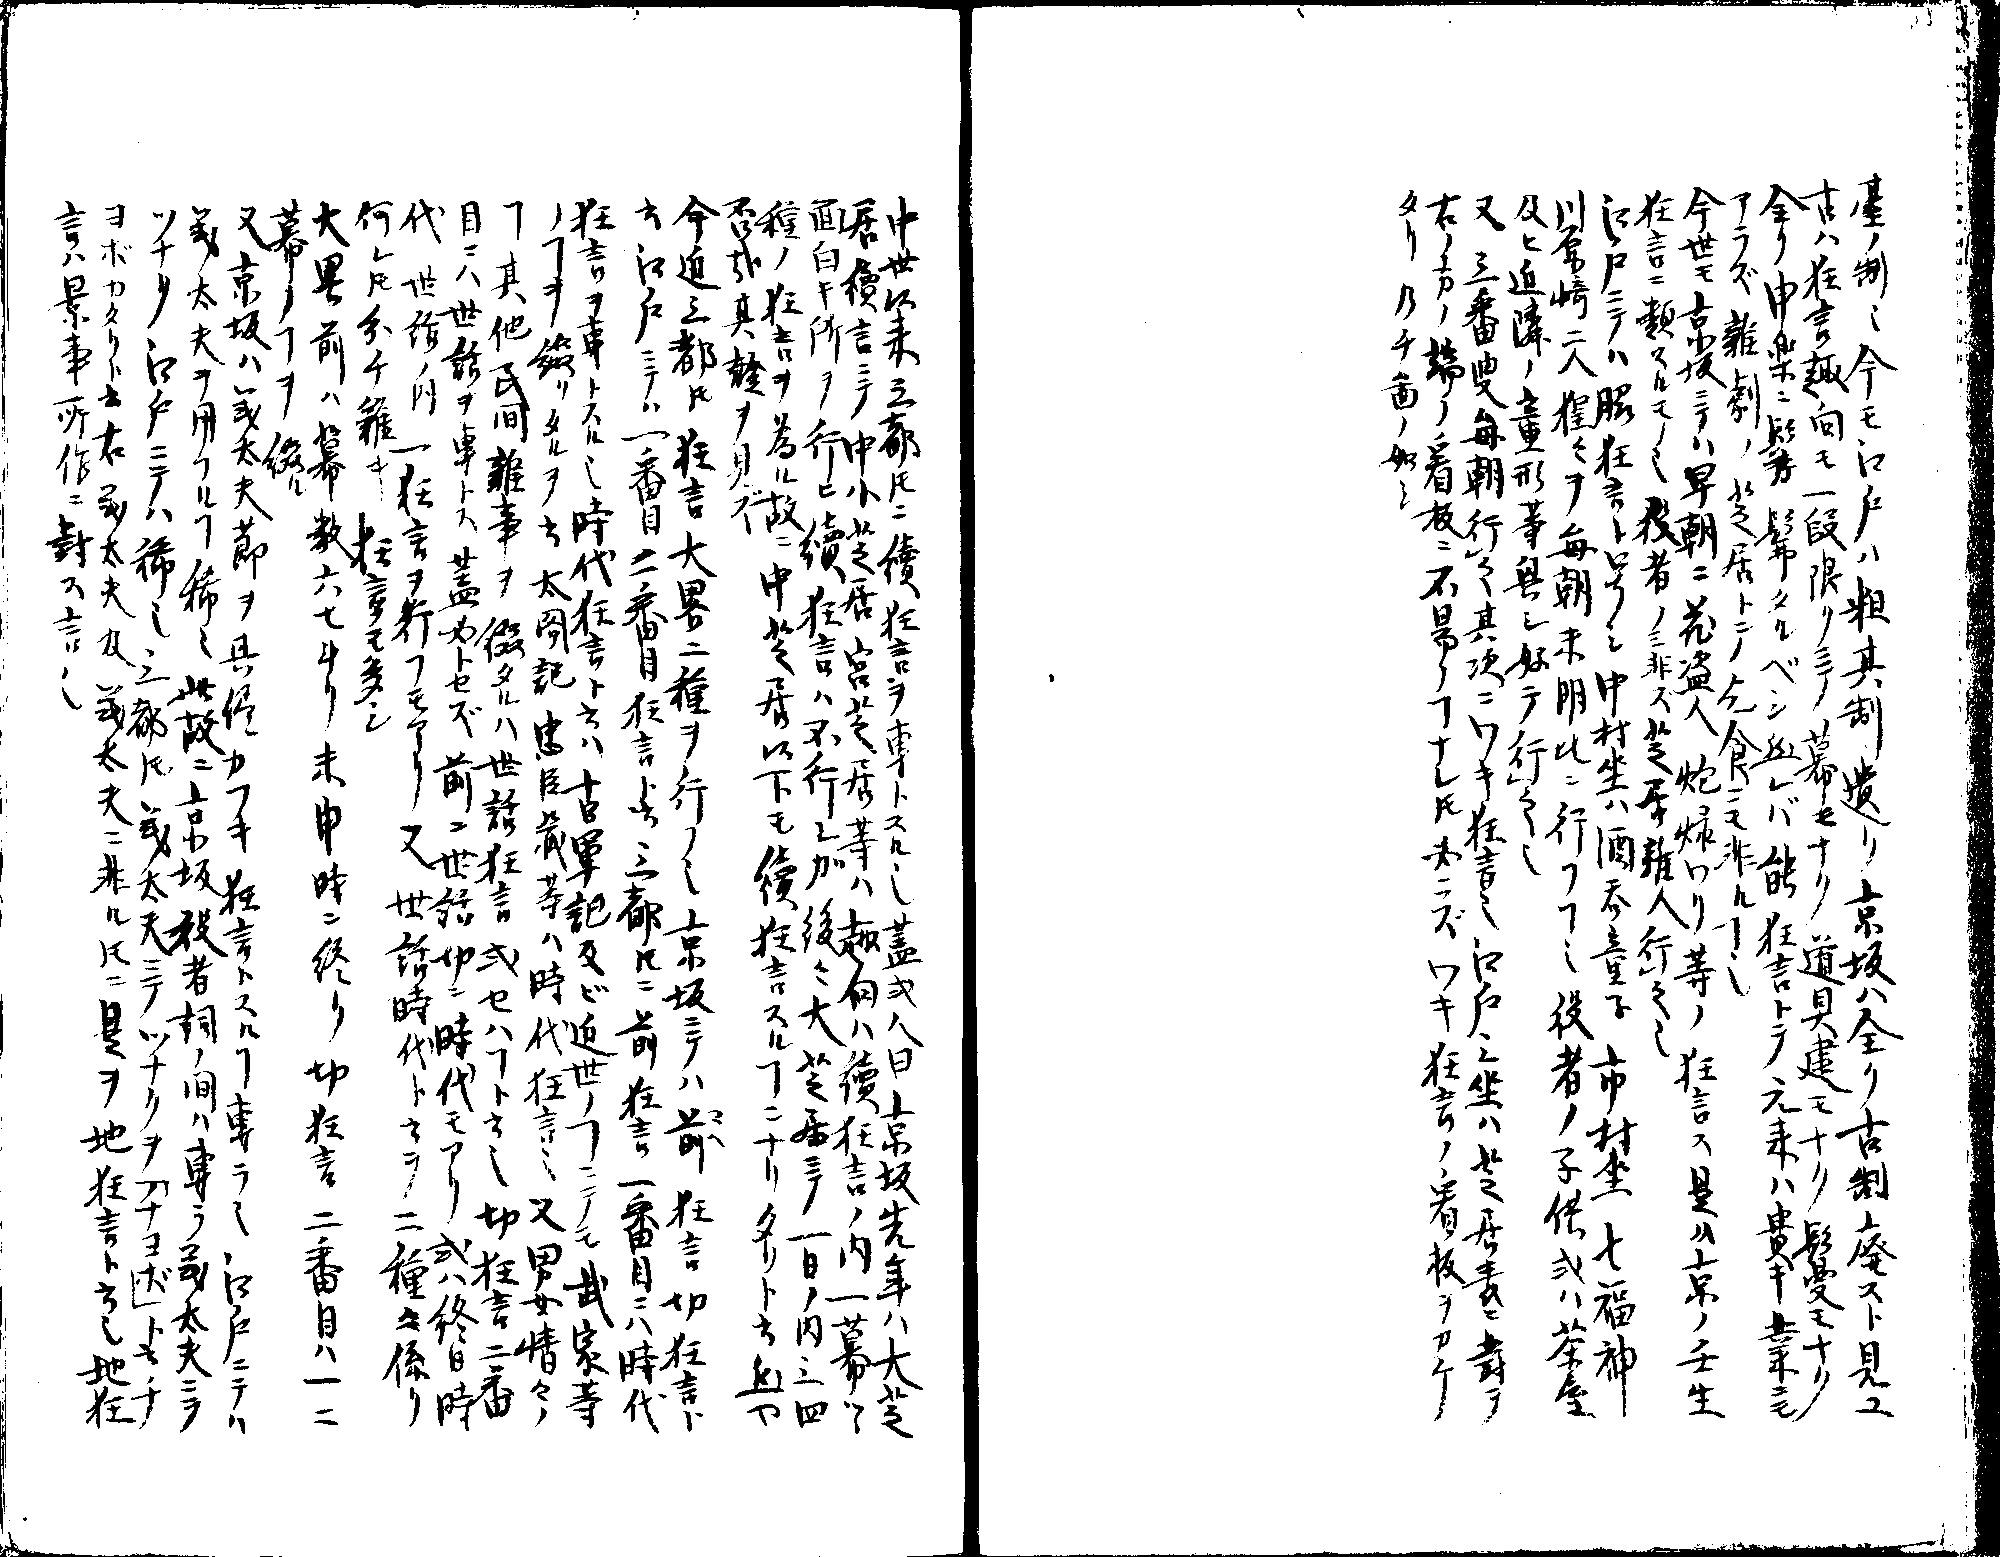 臺ノ制ミ今モ江戸ハ粗其制遺リ京坂ハ全ク古制廃スト見ユ
古ハ狂言趣向モ一段限リニテ幕モナク道具建モナク鬘モナク
全ク申楽ニ髣髴タルベシ然レバ能狂言トテ元来ハ賎キ業ニモ
アラズ雑劇ノ芝居トテノ乞食ニモ非ルヿ也
今世モ京坂ニテハ早朝ニ花盗人炮烙ワリ等ノ狂言ス是ハ京ノ壬生
狂言ニ類スルモノ也役者ノミ非ス芝居雑人行之也
江戸ニテハ脇狂言ト号シ中村坐ハ酒呑童子市村坐七福神
川原崎二人猩々ヲ毎朝未明ヒニ行フヿ也役者ノ子供或ハ茶屋
及ヒ近隣ノ童形等興シ好テ行之也
又三番叟毎朝行之其次ニワキ狂言也江戸三坐ハ芝居表ニ対テ
右ノ方ノ端ノ看板ニ不易ノヿナレ𪜈必ズワキ狂言ノ看板ヲカケ
タリ乃チ図ノ如シ
中世以来三都𪜈ニ續狂言ヲ専トスル也蓋或人曰京坂先年ハ大芝
居續言ニテ中小芝居宮芝居等ハ趣向ハ續狂言ノ内一幕ツヽ
面白キ所ヲ行ヒ續狂言ハ不行シガ後々大芝居ニテ一日ノ内三四
種ノ狂言ヲ為ル故ニ中芝居以下モ續狂言スルヿニナリタリト云然ヤ
否哉其證ヲ見ズ
今迠三都𪜈狂言大畧二種ヲ行フ也京坂ニテハ前狂言切狂言ト
云江戸ニテハ一番目二番目狂言ト云三都𪜈ニ前狂言一番目ニハ時代
狂言ヲ専トスル也時代狂言ト云ハ古軍記及ビ近世ノヿニテモ武家等
ノヿヲ綴リタルヲ云太閤記忠臣蔵等ハ時代狂言也又男女情々ノ
ヿ其他民間雑事ヲ綴タルハ世話狂言或セハヿト云也切狂言二番
目ニハ世話ヲ専トス蓋必トセズ前ニ世話切ニ時代モアリ或ハ終日時
代世話ノ内一狂言ヲ行フモアリ又世話時代トテ二種ニ係リ
何レ𪜈分チ難キ狂言モ多シ
大畧前ハ幕数六七ナリ未申時ニ終リ切狂言二番目ハ一二
幕ノヿヲ綴ル
又京坂ハ義太夫節ヲ具侭カフキ狂言トスルヿ専ラ也江戸ニテハ
義太夫ヲ用フルヿ稀也此故ニ京坂役者詞ノ間ハ専ラ義太夫ニテ
ツナク江戸ニテハ稀也三都𪜈義太夫ニテツナクヲ「チヨボ」ト云チ
ヨボカタリト云右義太夫及義太夫ニ非ル𪜈ニ是ヲ地狂言ト云也地狂
言ハ景事所作ニ對ス言ノ也